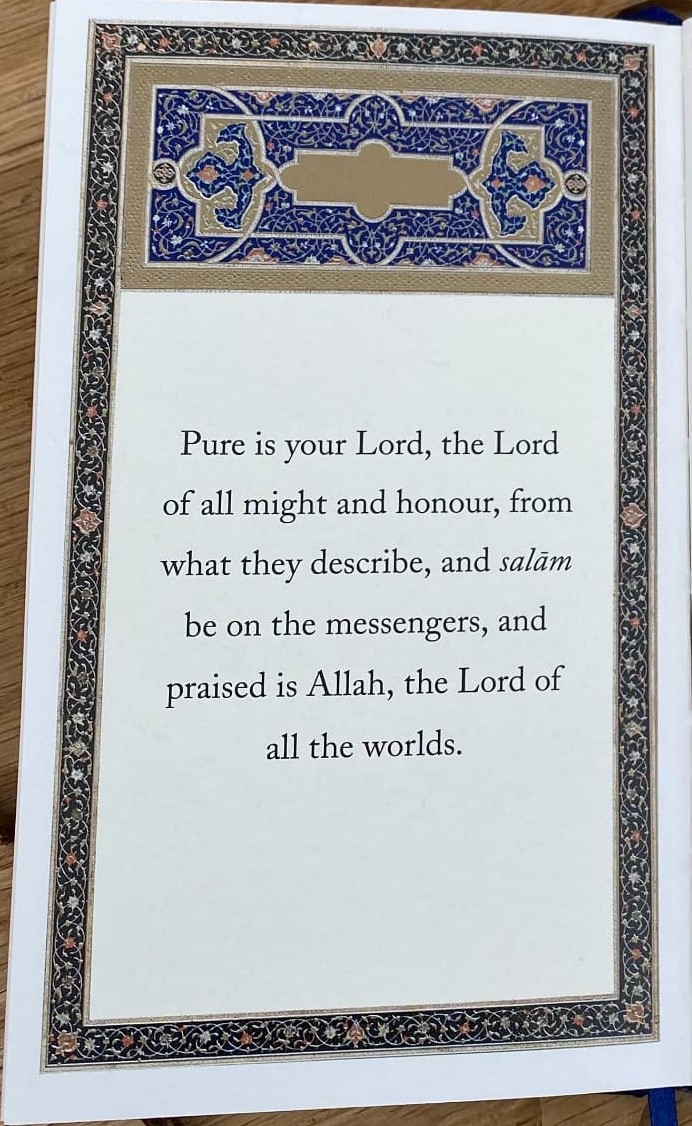 Pure is your Lord, the Lord
of all might and honour, from
what they describe, and salām
be on the messengers, and
praised is Allah, the Lord of
all the worlds.